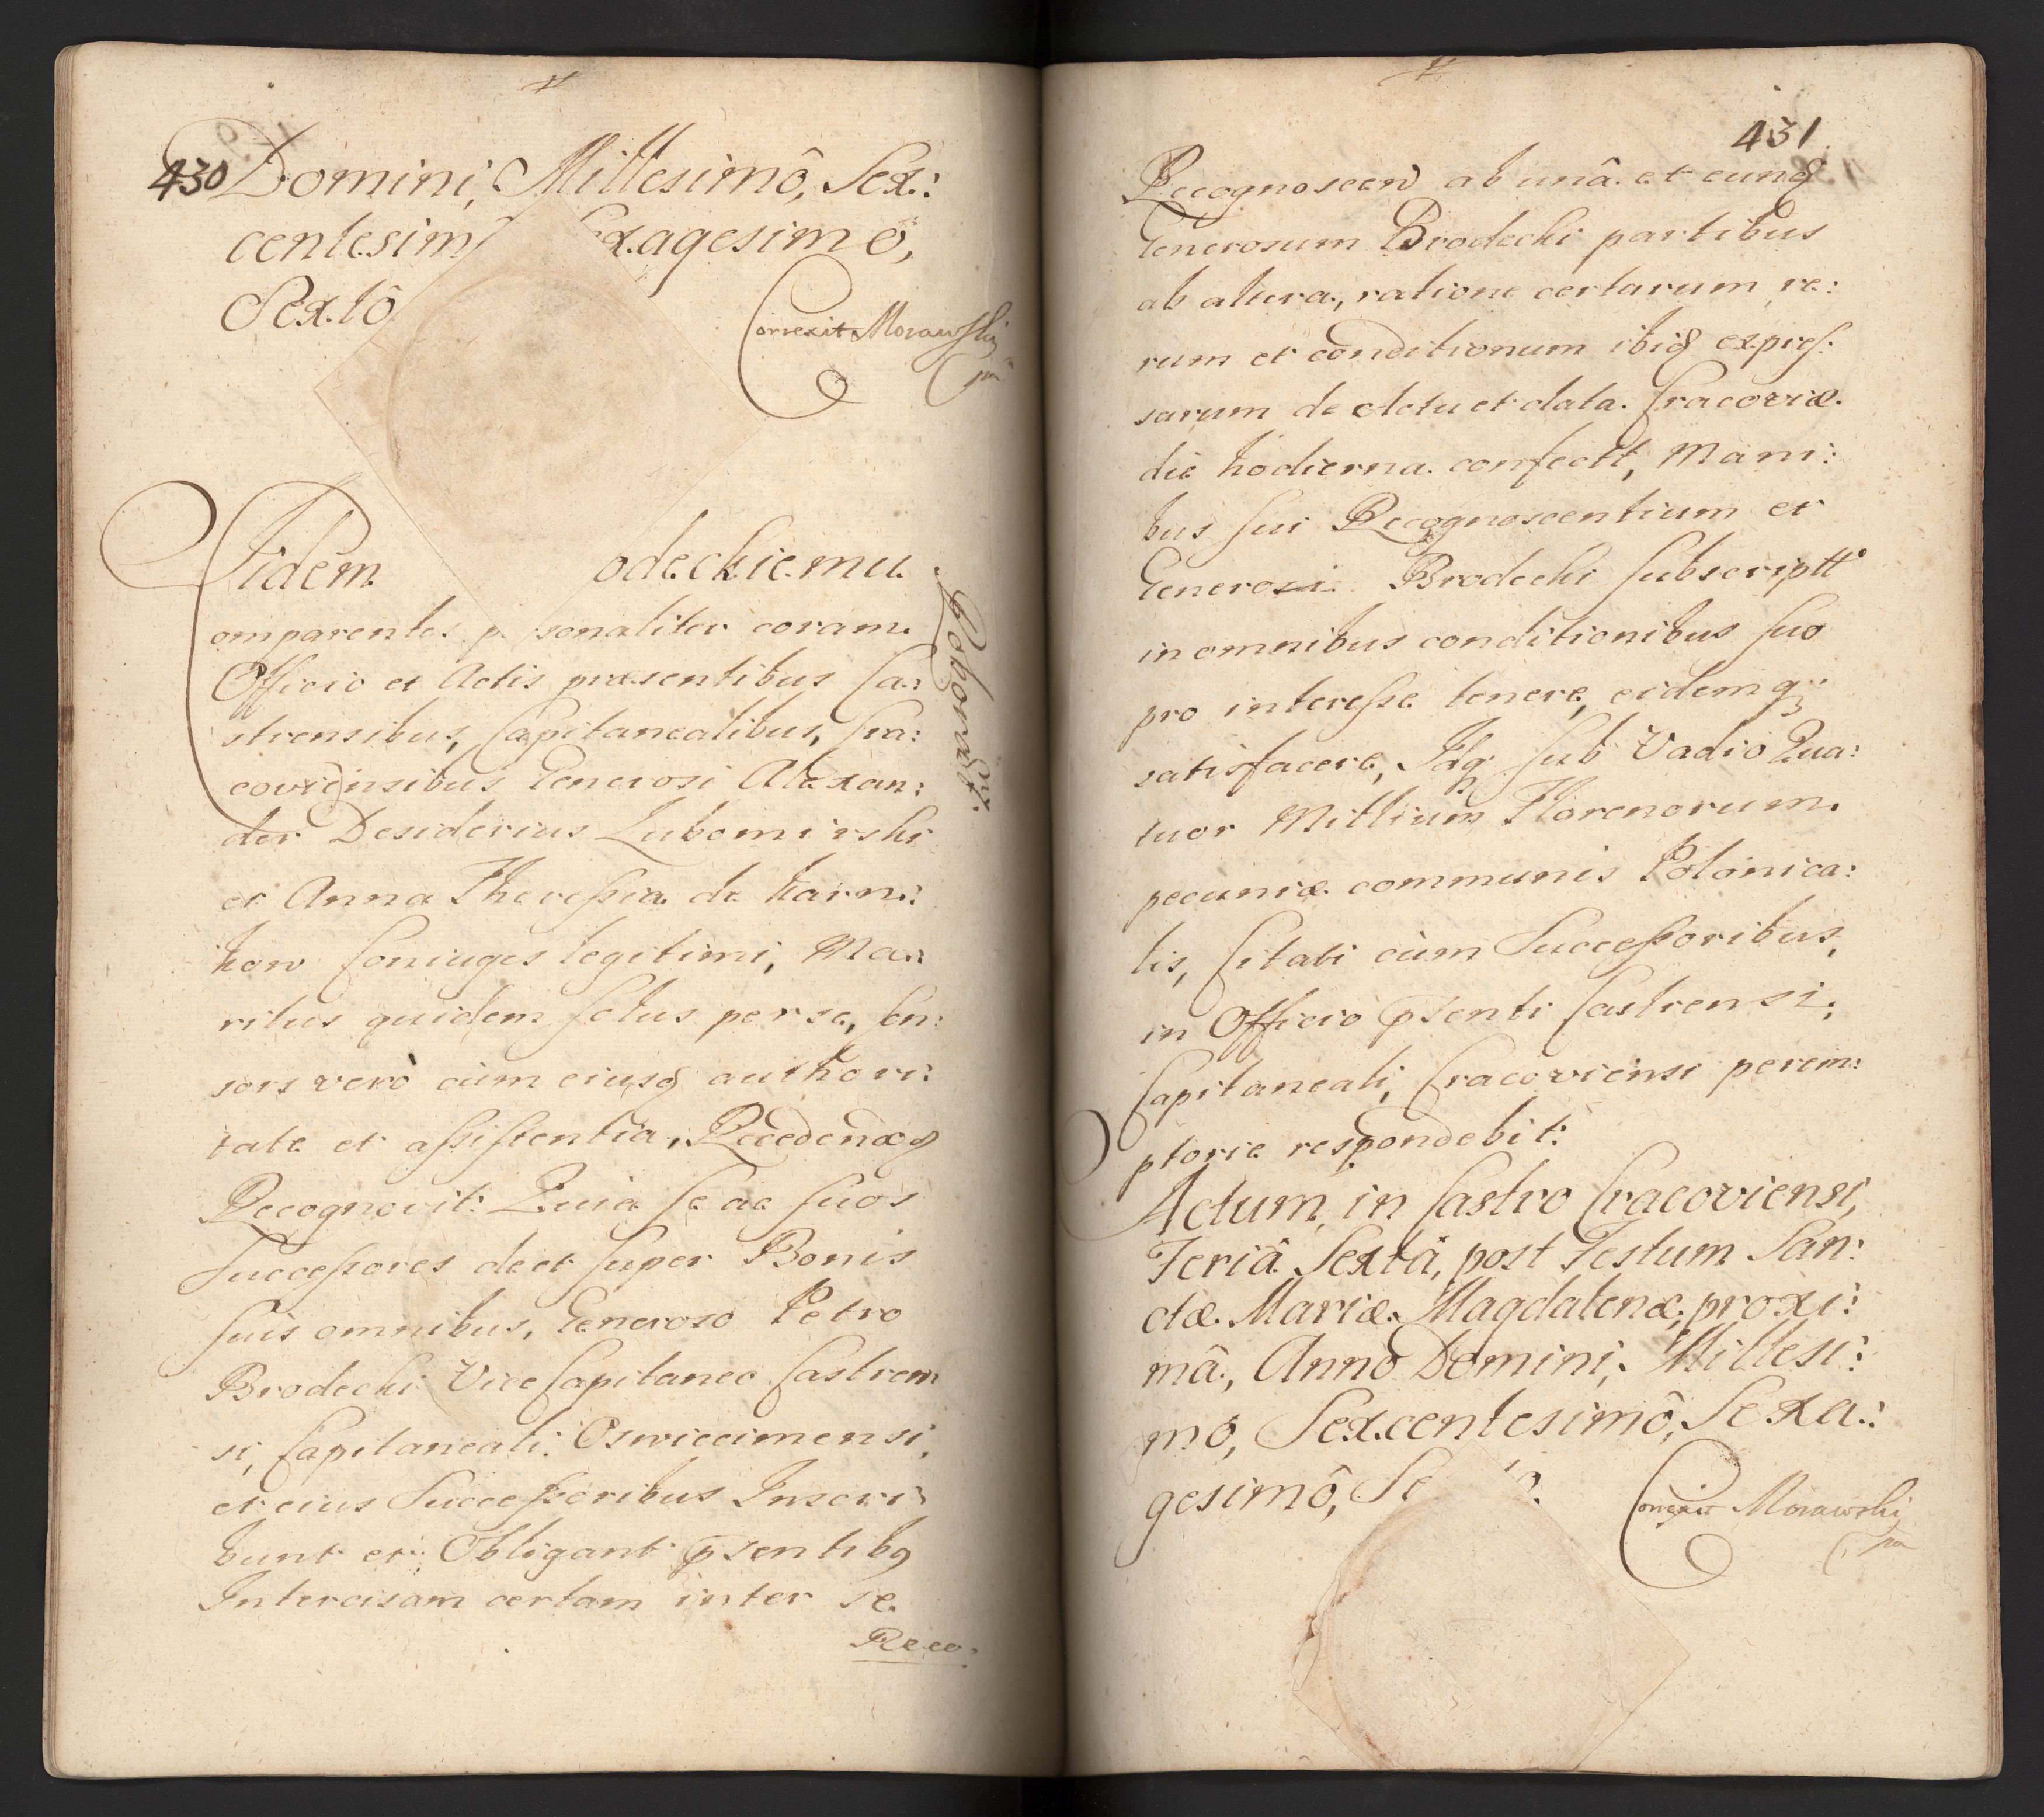 430
Domini, Millesimô, Sex:
centesim exagesimô,
Sextô
Correxit Morawski
mp
Iidem odeckiemu
Roborant
omparentes p sonaliter coram
Officio et Actis præsentibus Ca:
strensibus, Capitanealibus, Cra:
coviensibus Generosi Alexan:
der Desiderius Lubomirski
et Anna Theressia de Karn:
kow Coniuges legitimi, Ma:
ritus quidem solus per se, Con:
sors verò cùm eiusq authori:
tate et assistentia,
Recognovit: Quia se ac suos
Successores de et super Bonis
suis omnibus, Generoso Petro
Brodecki Vice Capitaneo Castren
si, Capitaneali Oswiecimensi,
et eius Successoribus Inscri
bunt et Obligant psentibq
Intercisam certam inter se
Reco:
431
Recognoscen ab unâ et eunq
Generosum Brodecki partibus
ab altera, ratione certarum re:
rum et conditionum ibiq expres:
sarum de Actu et data Cracoviæ
die hodierna confectt, Mani:
bus sui Recognoscentium et
Generosi Brodecki subscriptt
in omnibus conditionibus suo
pro interesse tenere, eidemq;
satisfacere, Idq; sub Vadio Qua:
tuor Millium Florenorum
pecuniæ communis Polonica:
lis, Citati cùm Successoribus,
in Officio psenti Castrensi,
Capitaneali, Cracoviensi perem:
ptorie respondebit:
Actum in Castro Cracoviensi,
Feriâ Sextâ, post Festum San:
ctæ Mariæ Magdalenæ, proxi:
mâ, Annô Domini, Millesi:
mô, Sexcentesimô, Sexa:
gesimô, Se
Correxit Morawski
mp